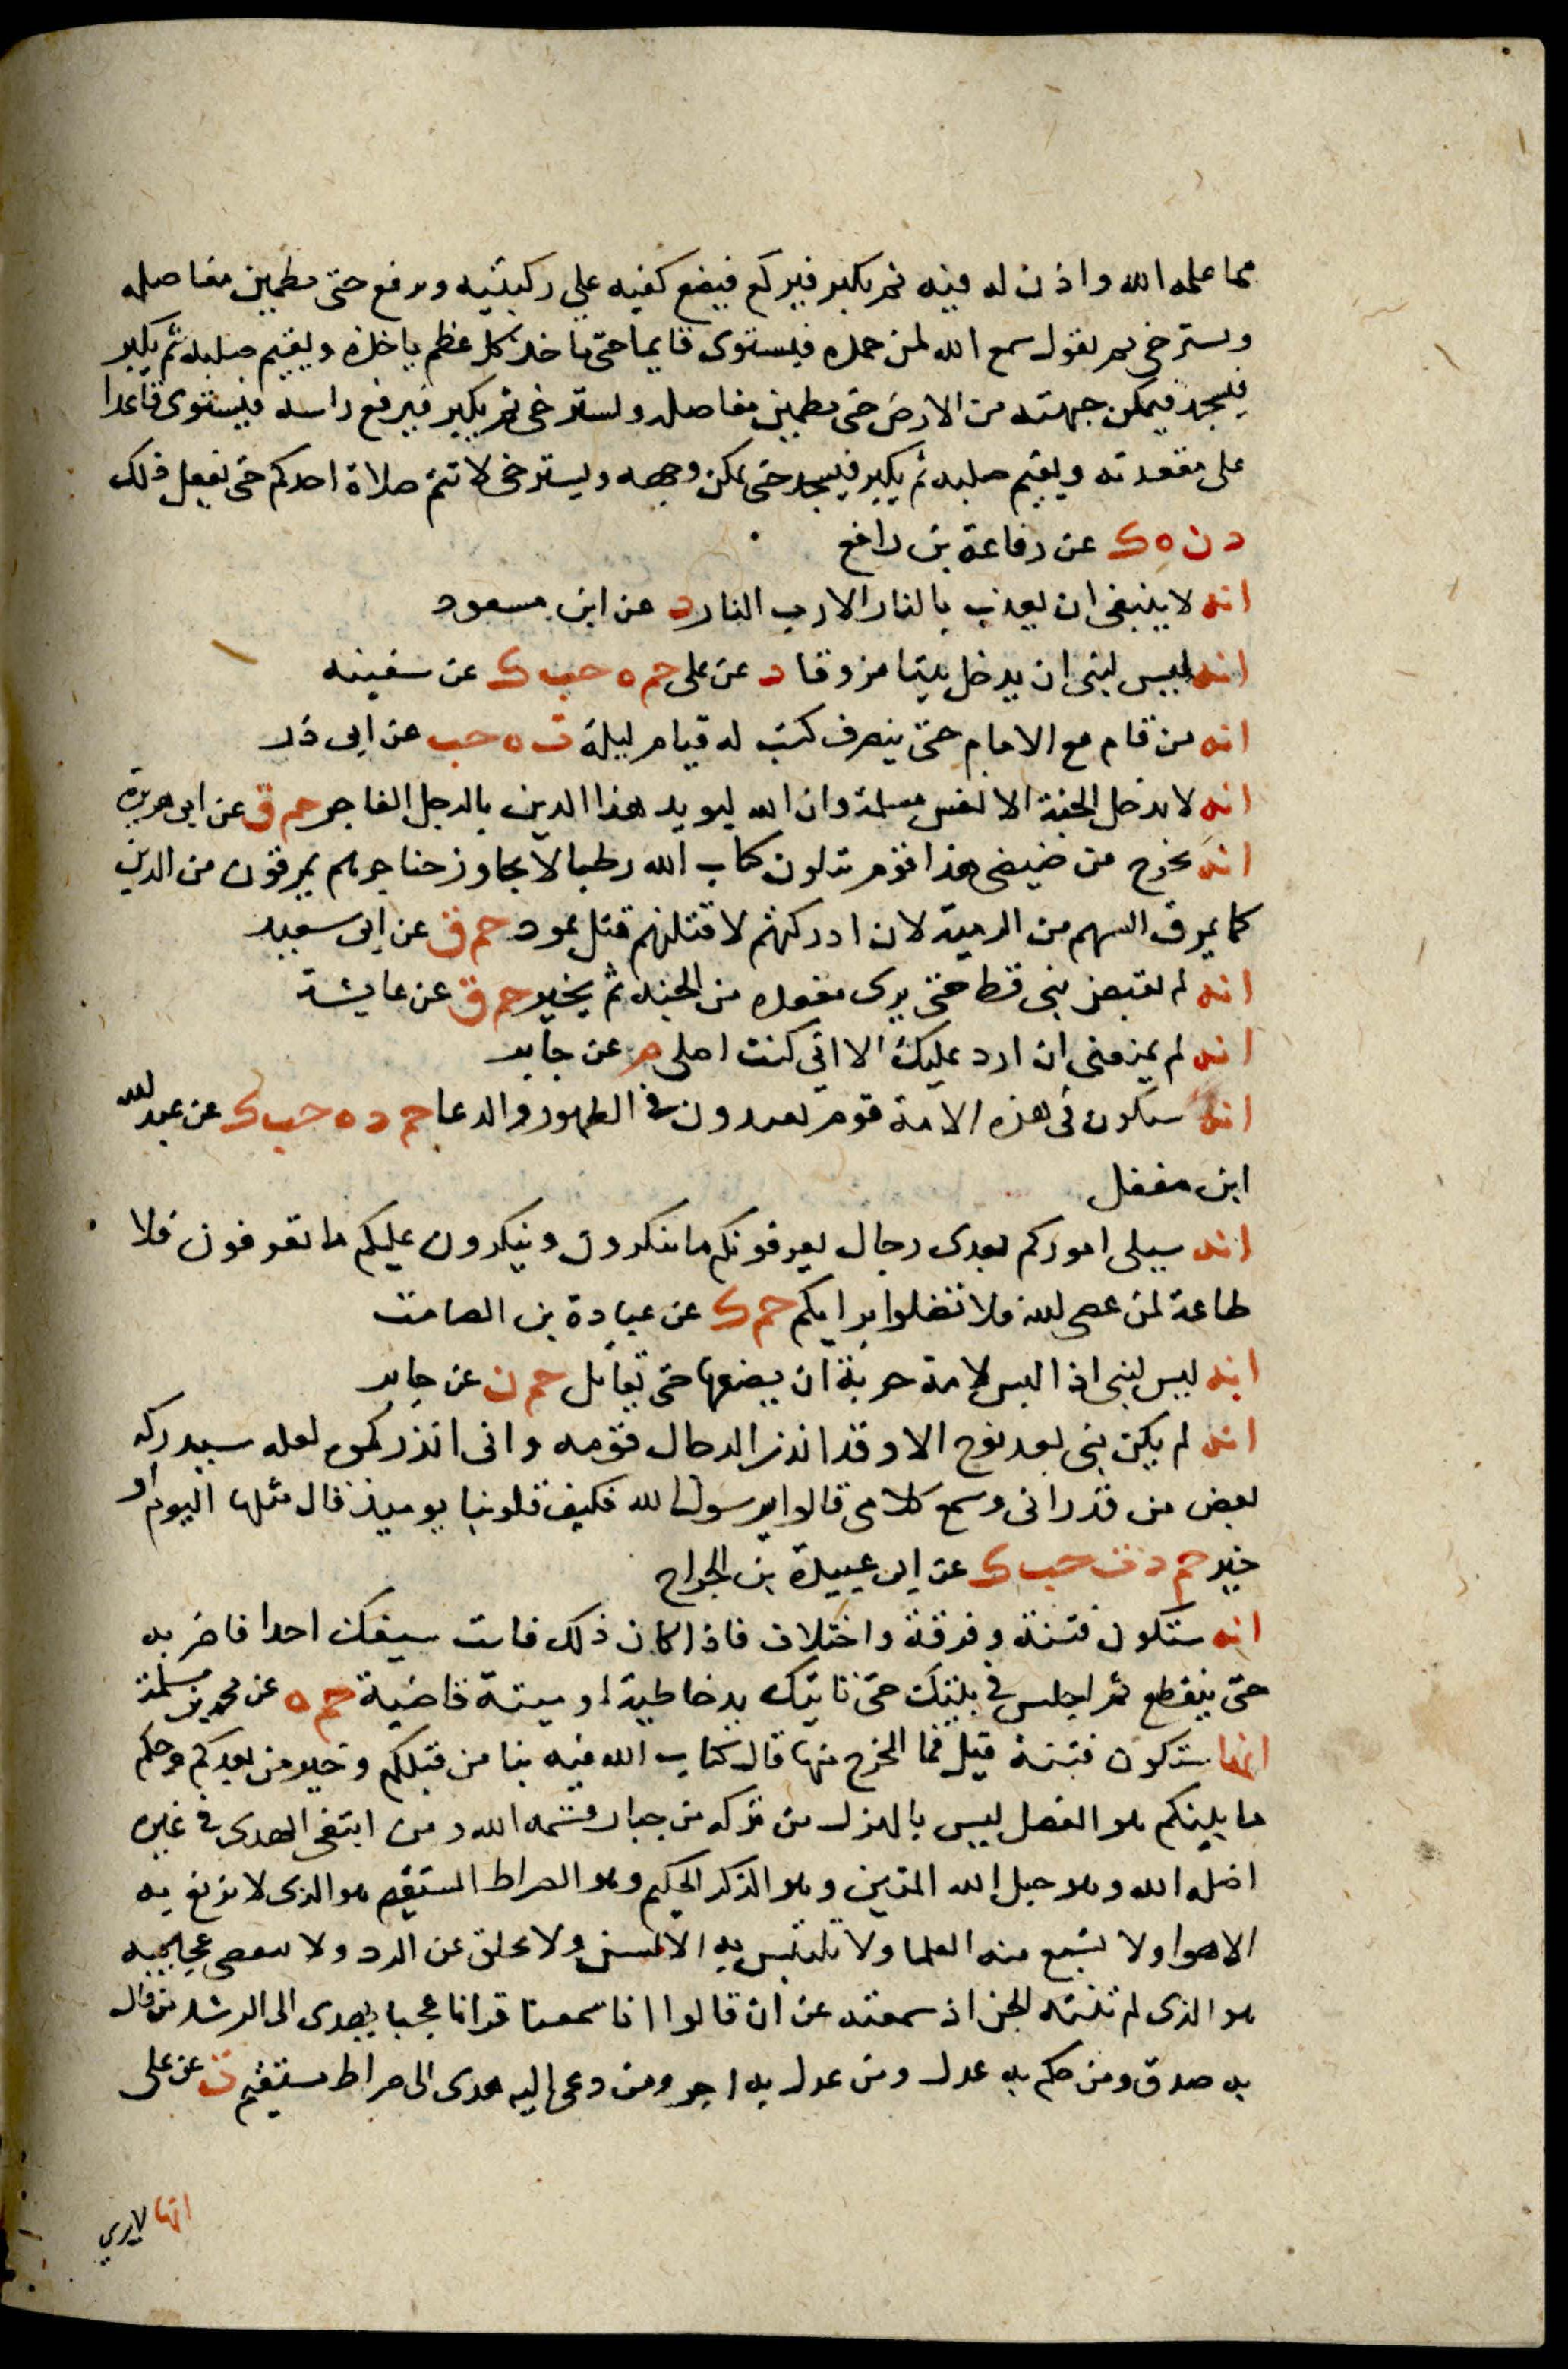 مما علمه الله واذن له فيه ثم يكبر فيركع فيضع كفيه على ركبتيه ويرفع حتى يطمين مفاصله
ويسترخي ثم يقول سمع الله لمن حمده فيستوى قايما حتى ياخذ كل عظم ماخذه ويقيم صلبه ثم يكبر
فيسجد فيمكن جبهته من الارض حتى يطمين مفاصله ويسترخي ثم يكبر فيرفع راسه فيستوى قاعدا
على مقعدته ويقيم صلبه ثم يكبر فيسجد حتى يمكن وجهه ويسترخي لا تتم صلاة احدكم حتى يفعل ذلك
د ن ه ك عن رفاعة بن رافع
انه لا ينبغي ان يعذب بالنار الا رب النار د عن ابن مسعود
انه ليس لنبى ان يدخل بيتا مزوقا د عن على حم ه حب ك عن سفينه
انه من قام مع الامام حتى ينصرف كتب له قيام ليلة ت ه حب عن ابى ذر
انه لا يدخل الجنة الا نفس مسلمة وان الله ليويد هذا الدين بالرجل الفاجر حم ق عن ابى هريرة
انه يخرج من ضيضى هذا قوم يتلون كتاب الله رطبا لا يجاوز حناجرهم يمرقون من الدين
كما يمرق السهم من الرمية لان ادركتهم لاقتلنهم قتل ثمود حم ق عن ابى سعيد
انه لم يقبض نبى قط حتى يرى مقعده من الجنه ثم يخير حم ق عن عايشة
انه لم يمنعنى ان ارد عليك الا انى كنت اصلى م عن جابر
انه سيكون فى هذه الامة قوم يعتدون فى الطهور والدعا حم د ه حب ك عن عبد الله
ابن مغفل
انه سيلى اموركم بعدى رجال يعرفونكم ما تنكرون وينكرون عليكم ما تعرفون فلا
طاعة لمن عصى الله فلا تضلوا بربكم حم ك عن عبادة بن الصامت
انه ليس لنبى اذا لبس لامة حربة ان يضعها حتى يقاتل حم ن عن جابر
انه لم يكن نبى بعد نوح الا وقد انذر الدجال قومه وانى انذركموه لعله سيدركه
بعض من قد رانى وسمع كلامى قالوا يرسول الله فكيف قلوبنا يوميذ قال مثلها اليوم او
خير حم د ت حب ك عن ابى عبيدة بن الجراح
انه ستكون فتنة وفرقة واختلاف فاذا كان ذلك فات سيفك احدا فاضربه
حتى ينقطع ثم اجلس فى بيتك حتى تاتيك يد خاطية او ميتة قاضية حم ه عن محمد بن مسلمة
انها ستكون فتنة قيل فما المخرج منها قال كتاب الله فيه نبا من قبلكم وخبر من بعدكم وحكم
ما بينكم هو الفصل ليس بالهزل من تركه من جبار قسمه الله ومن ابتغى الهدى فى غيره
اضله الله وهو حبل الله المتين وهو الذكر الحكيم وهو الصراط المستقيم هو الذى لا تزيغ به
الاهوا ولا يشبع منه العلما ولا تلتبس به الالسن ولا يخلق عن الرد ولا تنقضى عجايبه
هو الذى لم تنته الجن اذ سمعته عن ان قالوا انا سمعنا قرانا عجبا يهدى الى الرشد من قال
به صدق ومن حكم به عدل ومن عدل به اجر ومن دعى اليه هدى الى صراط مستقيم ت عن على
انها لا يرى